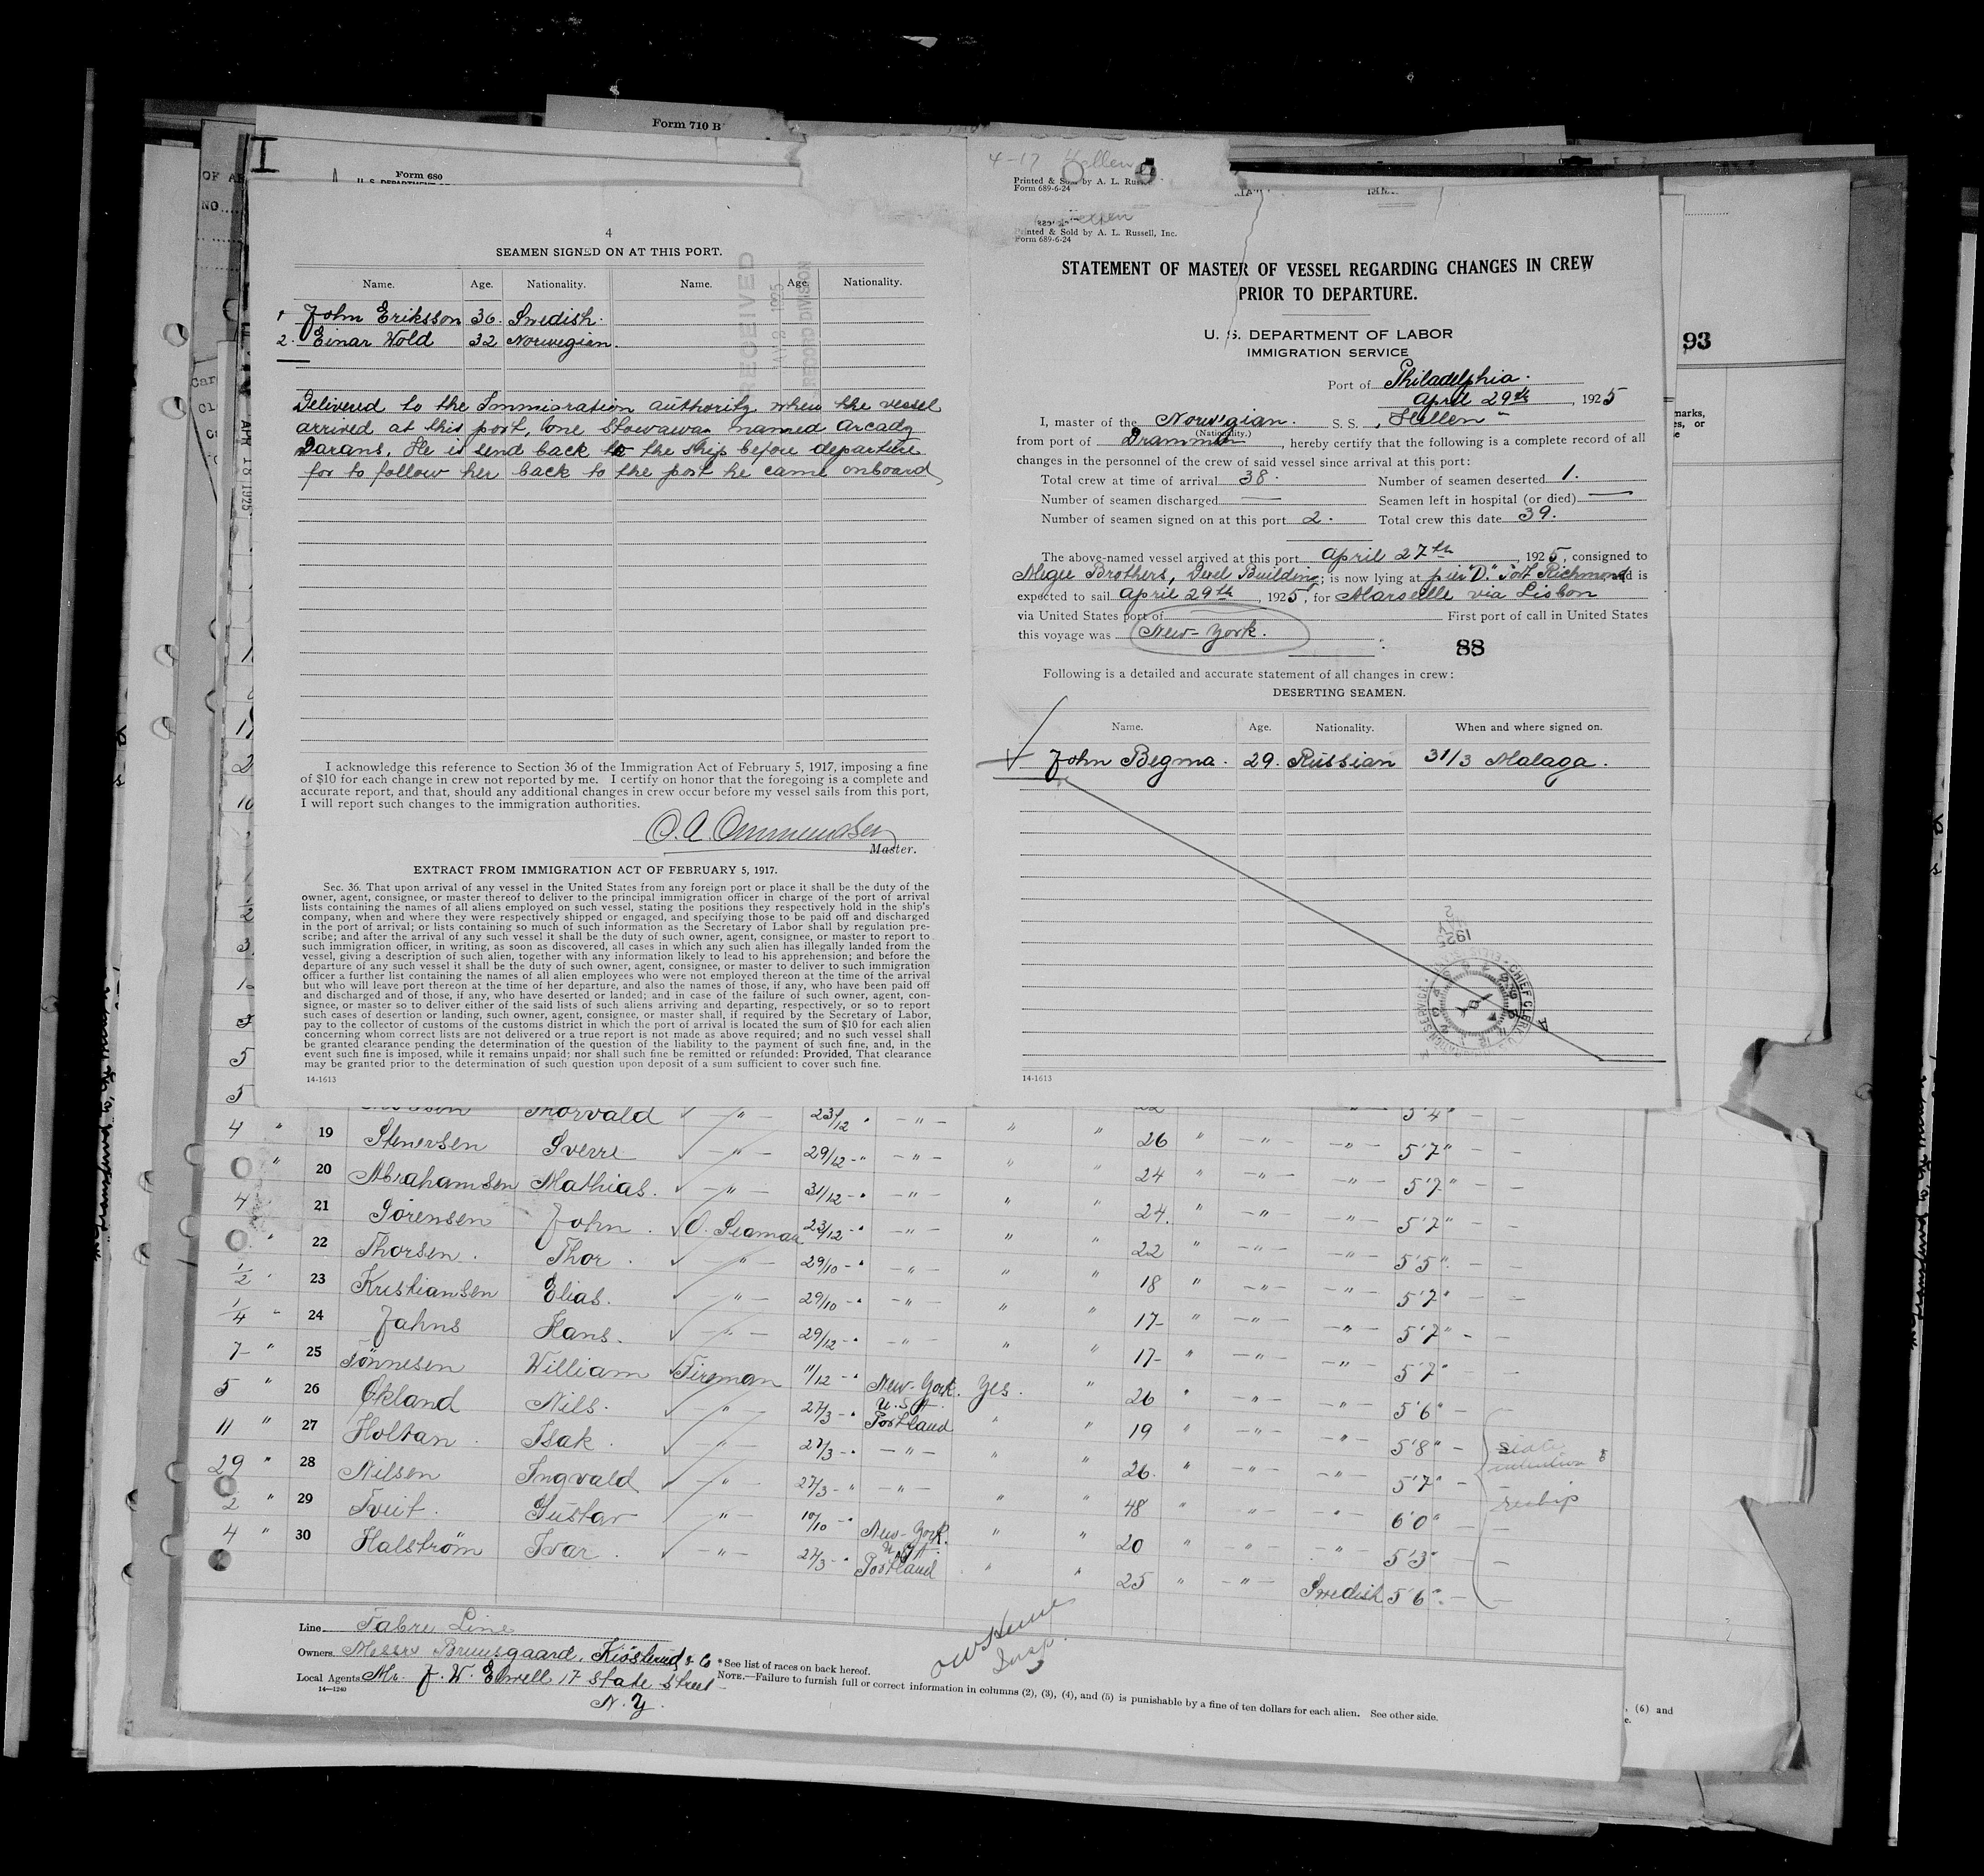 Form 710 B
Form 680
4
SEAMEN SIGNED ON AT THIS PORT.
Name. Age. Nationality. Name. Age. Nationality.
1 John Eriksson 36. Swedish.
2. Einar Wold 32 Norwegian.
Delivered to the Immigration authority when the vessel
arrived at this port, one Stowaway named Arcady
Darans. He is send back to the ship before departure
for to follow her back to the port he came onboard
RECEIVED
1925
RECORD DIVISION
I acknowledge this reference to Section 36 of the Immigration Act of February 5, 1917, imposing a fine
of $10 for each change in crew not reported by me. I certify on honor that the foregoing is a complete and
accurate report, and that, should any additional changes in crew occur before my vessel sails from this port,
I will report such changes to the immigration authorities.
O. A. Ommundsen
Master.
EXTRACT FROM IMMIGRATION ACT OF FEBRUARY 5, 1917.
Sec. 36. That upon arrival of any vessel in the United States from any foreign port or place it shall be the duty of the
owner, agent, consignee, or master thereof to deliver to the principal immigration officer in charge of the port of arrival
lists containing the names of all aliens employed on such vessel, stating the positions they respectively hold in the ship's
company, when and where they were respectively shipped or engaged, and specifying those to be paid off and discharged
in the port of arrival; or lists containing so much of such information as the Secretary of Labor shall by regulation pre-
scribe; and after the arrival of any such vessel it shall be the duty of such owner, agent, consignee, or master to report to
such immigration officer, in writing, as soon as discovered, all cases in which any such alien has illegally landed from the
vessel, giving a description of such alien, together with any information likely to lead to his apprehension; and before the
departure of any such vessel it shall be the duty of such owner, agent, consignee, or master to deliver to such immigration
officer a further list containing the names of all alien employees who were not employed thereon at the time of the arrival
but who will leave port thereon at the time of her departure, and also the names of those, if any, who have been paid off
and discharged and of those, if any, who have deserted or landed; and in case of the failure of such owner, agent, con-
signee, or master so to deliver either of the said lists of such aliens arriving and departing, respectively, or so to report
such cases of desertion or landing, such owner, agent, consignee, or master shall, if required by the Secretary of Labor,
pay to the collector of customs of the customs district in which the port of arrival is located the sum of $10 for each alien
concerning whom correct lists are not delivered or a true report is not made as above required; and no such vessel shall
be granted clearance pending the determination of the question of the liability to the payment of such fine, and, in the
event such fine is imposed, while it remains unpaid; nor shall such fine be remitted or refunded: Provided, That clearance
may be granted prior to the determination of such question upon deposit of a sum sufficient to cover such fine.
14-1613
4-17 Hellen
Printed & Sold by A. L. Russell
Form 689-6-24
Printed & Sold by A. L. Russell, Inc.
Form 689-6-24
STATEMENT OF MASTER OF VESSEL REGARDING CHANGES IN CREW
PRIOR TO DEPARTURE.
U. S. DEPARTMENT OF LABOR
IMMIGRATION SERVICE
Port of Philadelphia.
April 29th, 1925
I, master of the Norwegian. S. S. "Hellen"
(Nationality.)
from port of Drammen, hereby certify that the following is a complete record of all
changes in the personnel of the crew of said vessel since arrival at this port:
Total crew at time of arrival 38. Number of seamen deserted 1.
Number of seamen discharged — Seamen left in hospital (or died) —
Number of seamen signed on at this port 2. Total crew this date 39.
The above-named vessel arrived at this port April 27th, 1925, consigned to
Megee Brothers, Building; is now lying at pier "D." Port Richmond and is
expected to sail April 29th, 1925, for Marseille via Lisbon
via United States port of First port of call in United States
this voyage was New-York.
88
Following is a detailed and accurate statement of all changes in crew:
DESERTING SEAMEN.
Name. Age. Nationality. When and where signed on.
John Begma. 29. Russian 31/3 Malaga.
1925
CHIEF CLERK
14-1613
93
APR 18 1925
Thorvald 23/12 22 5'4"
4 " 19 Stenersen Sverre 29/12 26 5'7"
" 20 Abrahamsen Mathias. 31/12 24 5'7"
4 21 Sörensen John. O. Seaman 23/12 24. 5'7"
" 22 Thorsen. Thor. 29/10 22 5'5"
1/2 " 23 Kristiansen Elias. 29/10 18 5'7"
1/4 " 24 Jahns Hans. 29/12 17- 5'7"
7- " 25 Tönnesen William Fireman 11/12 New-York. U.S.A. Yes. 17- 5'7"
5 " 26 Ökland Nils. 27/3 Portland 26 5'6"
11 " 27 Holtan. Isak. 27/3 19 5'8"
29 " 28 Nilsen Ingvald 27/3 26. 5'7"
2 " 29 Tveit. Gustav 10/10 New-York. 48 6'0"
4 " 30 Halström Ivar. 27/3 Portland 20 5'3"
25 Swedish 5'6"
reship
Line Fabre Line
Owners. Messrs Bruusgaard, Kiösterud & Co
Local Agents Mr. J. W. Elwell 17 State Street
N.Y.
14-1240
*See list of races on back hereof.
NOTE.—Failure to furnish full or correct information in columns (2), (3), (4), and (5) is punishable by a fine of ten dollars for each alien. See other side.
Insp.
, (6) and